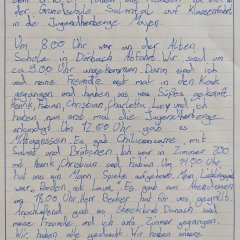 der Grundschule Salmtal auf Klassenfahrt
in die Jugendherberge Mayen.
Um 8.00 Uhr war an der Alten
Schule in Dörbach Abfahrt. Wir sind um
ca 9.00 Uhr angekommen. Dann sind ich
und meine Freunde erst mal in den Kiosk
gegangen und haben uns was Süßes gekauft.
Henrik, Fabian, Christian, Charlotte, Luca und ich
haben nun erst mal die Jugendherberge
erkundigt. Um 12.00 Uhr gab es
Mittagessen. Es gab Chiliconcarne mit
Salat und Brötchen. Ich war in Zimmer 200
mit Henrik, Christian und Fabian. Um 14.00 Uhr
hat uns ein Mann Spiele aufgebaut. Mein Lieblingsspiel
war „Boden ist Lava." Es gab zum Abendessen
um 18.00 Uhr. Herr Becker hat für uns gegrillt.
Anschließend gab es Stockbrot. Danach sind
meine Freunde und ich ins Zimmer gegangen.
Wir haben die gebracht. Wir haben unsere